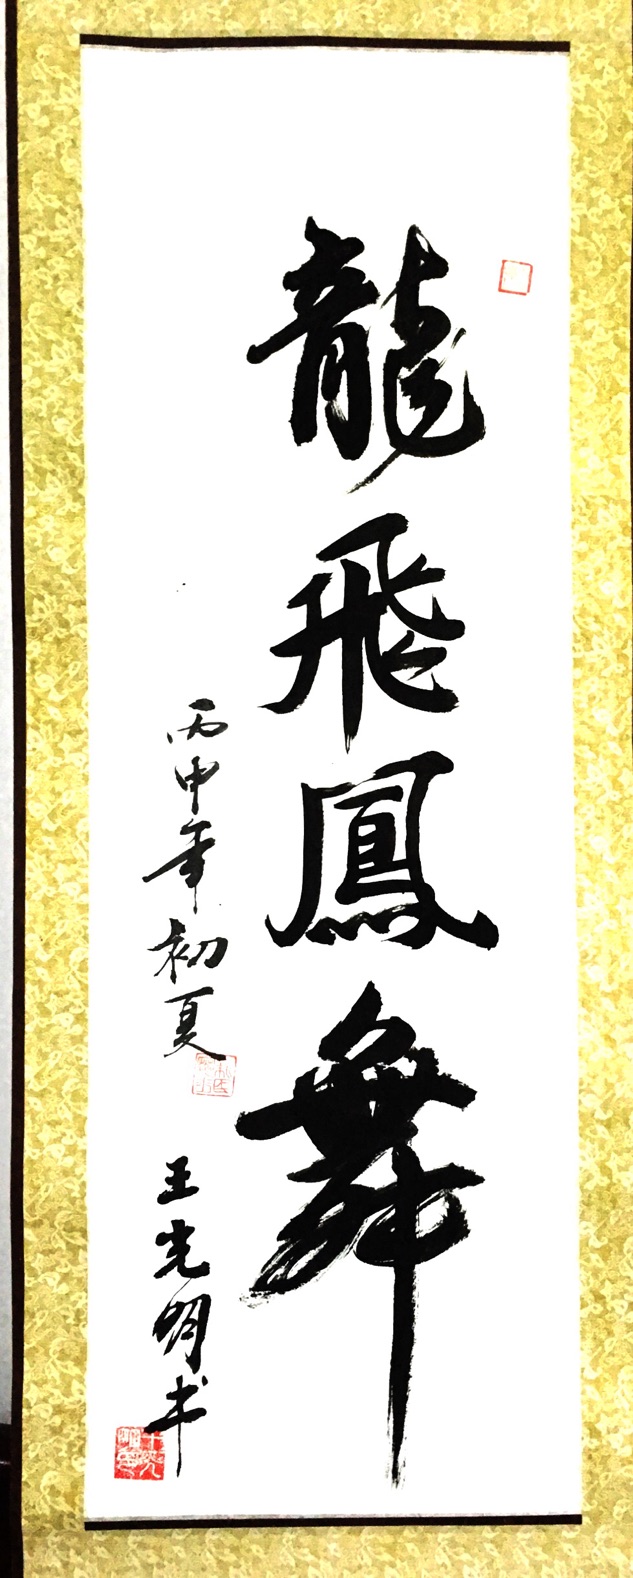 龍飛鳳舞
丙申年初夏
王光明书